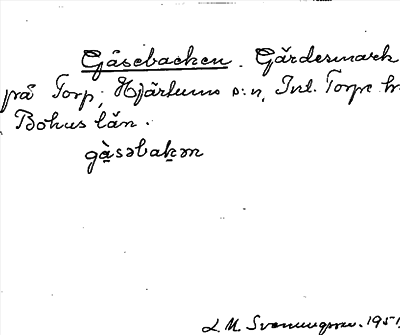 Gåsebacken. Gärdesmark
på Torp, Hjärtums s:n, Inl. Torpe h
Bohus län.
gàsəbakən
L. M. Svenungsson. 1951